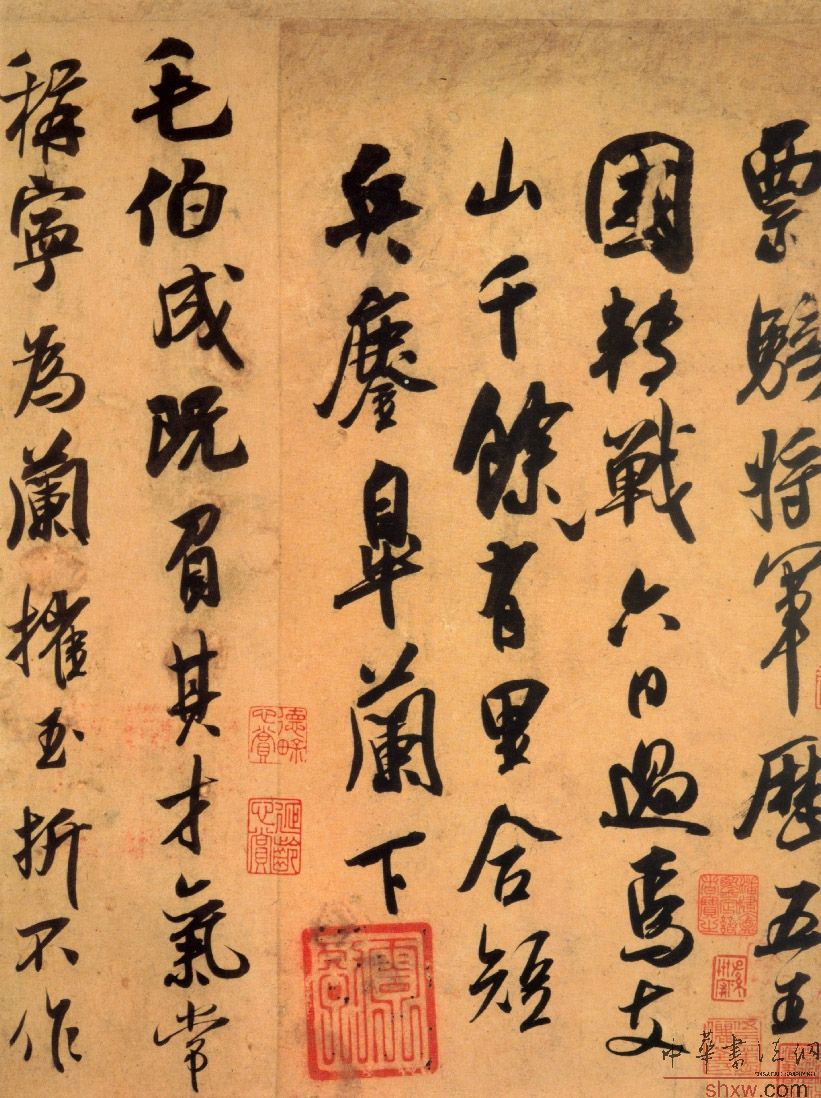 票騎將軍歷五王
國轉戰六日過焉支
山千餘有里合短
兵鏖皋蘭下
毛伯成既負其才氣常
稱寧為蘭摧玉折不作
德畬心賞
延齡心賞
中華書法網
shxw.com